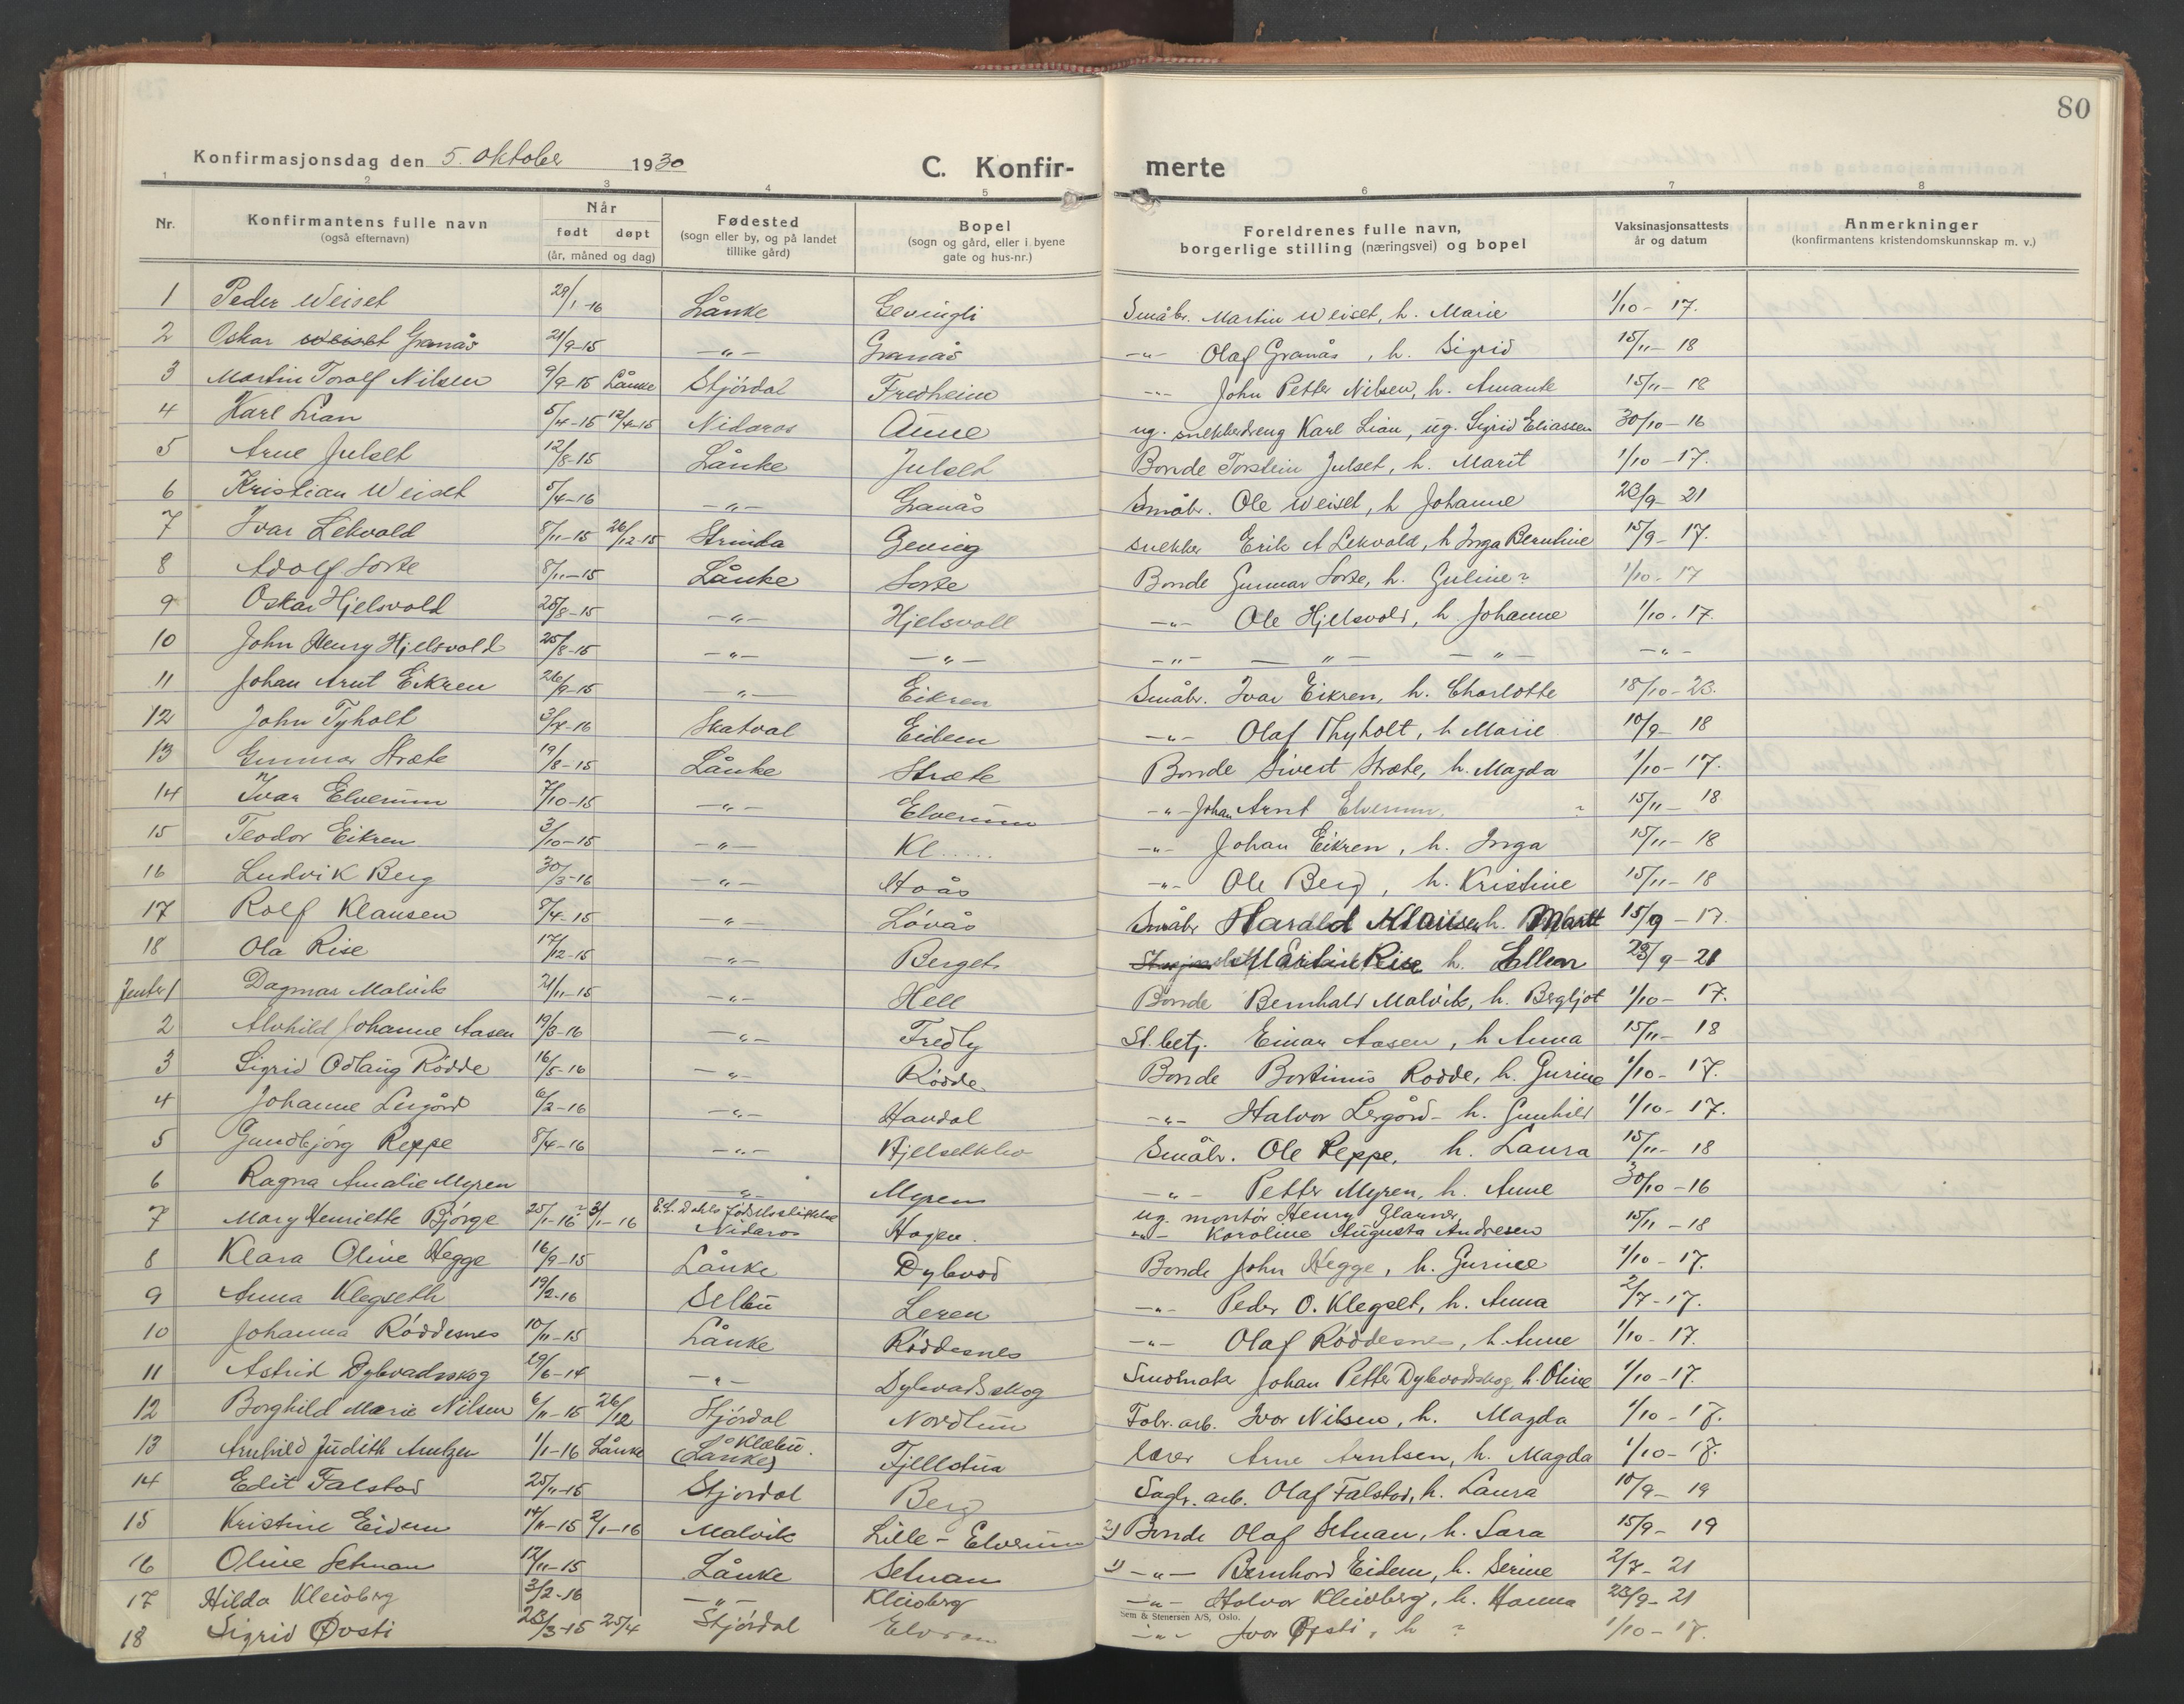 80
Konfirmasjonsdag den 5. oktober 1930 C. Konfir- merte
1 2 3 4 5 6 7 8
Nr. Konfirmantens fulle navn (også efternavn) Når født døpt (år, måned og dag) Fødested (sogn eller by, og på landet tillike gård) Bopel (sogn og gård, eller i byene gate og hus-nr.) Foreldrenes fulle navn, borgerlige stilling (næringsvei) og bopel Vaksinasjonsattests år og datum Anmerkninger (konfirmantens kristendomskunnskap m. v.)
1 Peder Weiset 29/1-16 Lånke Gevingli Småbr. Martin Weiset, h. Marie 1/10-17.
2 Oskar Weiset Granås 21/9-15 -"- Granås -"- Olaf Granås, h. Sigrid 15/11-18
3 Martin Toralf Nilsen 9/9-15 Lånke Stjördal Fredheim -"- John Petter Nilsen, h. Amante 15/11-18
4 Karl Lian 5/4-15 12/4-15 Nidaros Aune ug. snekkerdreng Karl Lian, ug. Sigrid Eliassen 30/10-16
5 Arne Julset 12/8-15 Lånke Julset Bonde Torstein Julset, h. Marit 1/10-17.
6 Kristian Weiset 5/4-16 -"- Granås Småbr. Ole Weiset, h Johanne 23/9-21
7 Ivar Lekvold 8/11-15 26/12-15 Strinda Geving snekker Erik A Lekvold, h Inga Berntine 15/9-17.
8 Adolf Sorte 8/11-15 Lånke Sorte Bonde Gunnar Sorte, h. Guline? 1/10-17
9 Oskar Hjelsvold 25/8-15 -"- Hjelsvoll -"- Ole Hjelsvold, h. Johanne 1/10-17.
10 John Henry Hjelsvold 25/8-15 -"- -"- -"- -"- -"- -"-
11 Johan Arnt Eikren 26/9-15 -"- Eikren Småbr. Ivar Eikren, h. Charlotte 18/10-23.
12 John Tyholt 3/4-16 Skatval Eidem -"- Olaf Thyholt, h Marie 10/9-18
13 Gunnar Stræte 19/8-15 Lånke Stræte Bonde Sivert Stræte, h. Magda 1/10-17.
14 Ivar Elverum 7/10-15 -"- Elverum -"- Johan Arnt Elverum, ? 15/11-18
15 Teodor Eikren 3/10-15 -"- Kl..... -"- Johan Eikren, h. Inga 15/11-18
16 Ludvik Berg 30/3-16 -"- Hoås -"- Ole Berg, h. Kristine 15/11-18
17 Rolf Klausen 8/4-15 -"- Lövås Småbr Harald Klausen h. Marit 15/9-17.
18 Ola Rise 17/12-15 -"- Berget Martin Rise h. Ellen 23/9-21
Jenter 1 Dagmar Malvik 21/11-15 -"- Hell Bonde Bernhard Malvik, h. Bergljot 1/10-17.
2 Alvhild Johanne Aasen 19/3-16 -"- Fredly St.betj. Einar Aasen, h Anna 15/11-18
3 Sigrid Odlaug Rödde 16/5-16 -"- Rödde Bonde Bortinus Rödde, h. Gurine 1/10-17.
4 Johanne Lergård 6/2-16 -"- Havdal -"- Halvor Lergård h. Gunhild 1/10-17.
5 Gundbjörg Reppe 8/4-16 -"- Hjelseklev Småbr. Ole Reppe, h. Laura 15/11-18
6 Ragna Amalie Myren -"- Myren -"- Petter Myren, h. Anne 30/10-16
7 Mary Henriette Björge 25/1-16 ?3/1-16 E.C. Dahls fødselsstiftelse Nidaros Hagen. ug. montör Henry Glanner, -"- Karoline Augusta Andresen 15/11-18
8 Klara Oline Hegge 16/9-15 Lånke Dybvad Bonde John Hegge, h. Gurine 1/10-17.
9 Anna Klegseth 19/2-16 Selbu Leren -"- Peder O. Klegset, h. Anna 2/7-17.
10 Johanna Röddesnes 10/11-15 Lånke Röddesnes -"- Olaf Röddesnes, h. Anne 1/10-17.
11 Astrid Dybvadskog 29/6-14 -"- Dybvadskog Skomaker Johan Petter Dybvadskog, h. Oline 1/10-17.
12 Borghild Marie Nilsen 6/11-15 26/12 Stjördal Nordtun Fabr.arb. Ivar Nilsen, h. Magda 1/10-17.
13 Arnhild Judith Arntzen 1/1-16 Lånke Klæbu. (Lånke) Fjelltun Lærer Arne Arntsen, h. Magda 1/10-17.
14 Edit Falstad 25/11-15 Stjordal Berg Sagbr. arb. Olaf Falstad, h. Laura 10/9-19
15 Kristine Eidem 14/11-15 2/1-16 Malvik Lille-Elverum 2) Bonde Olaf Setnan, h. Sara 15/9-19
16 Oline Setnan 12/11-15 Lånke Setnan 1) -"- Bernhard Eidem, h. Serine 2/7-21
17 Hilda Kleivberg 3/2-16 -"- Kleivberg -"- Halvor Kleivberg, h. Hanna 23/9-21
Sem & Stenersen A/S, Oslo.
18 Sigrid Øvsti 23/3-15 25/4 Stjördal Elvran -"- Ivar Øfsti, h ? 1/10-17.